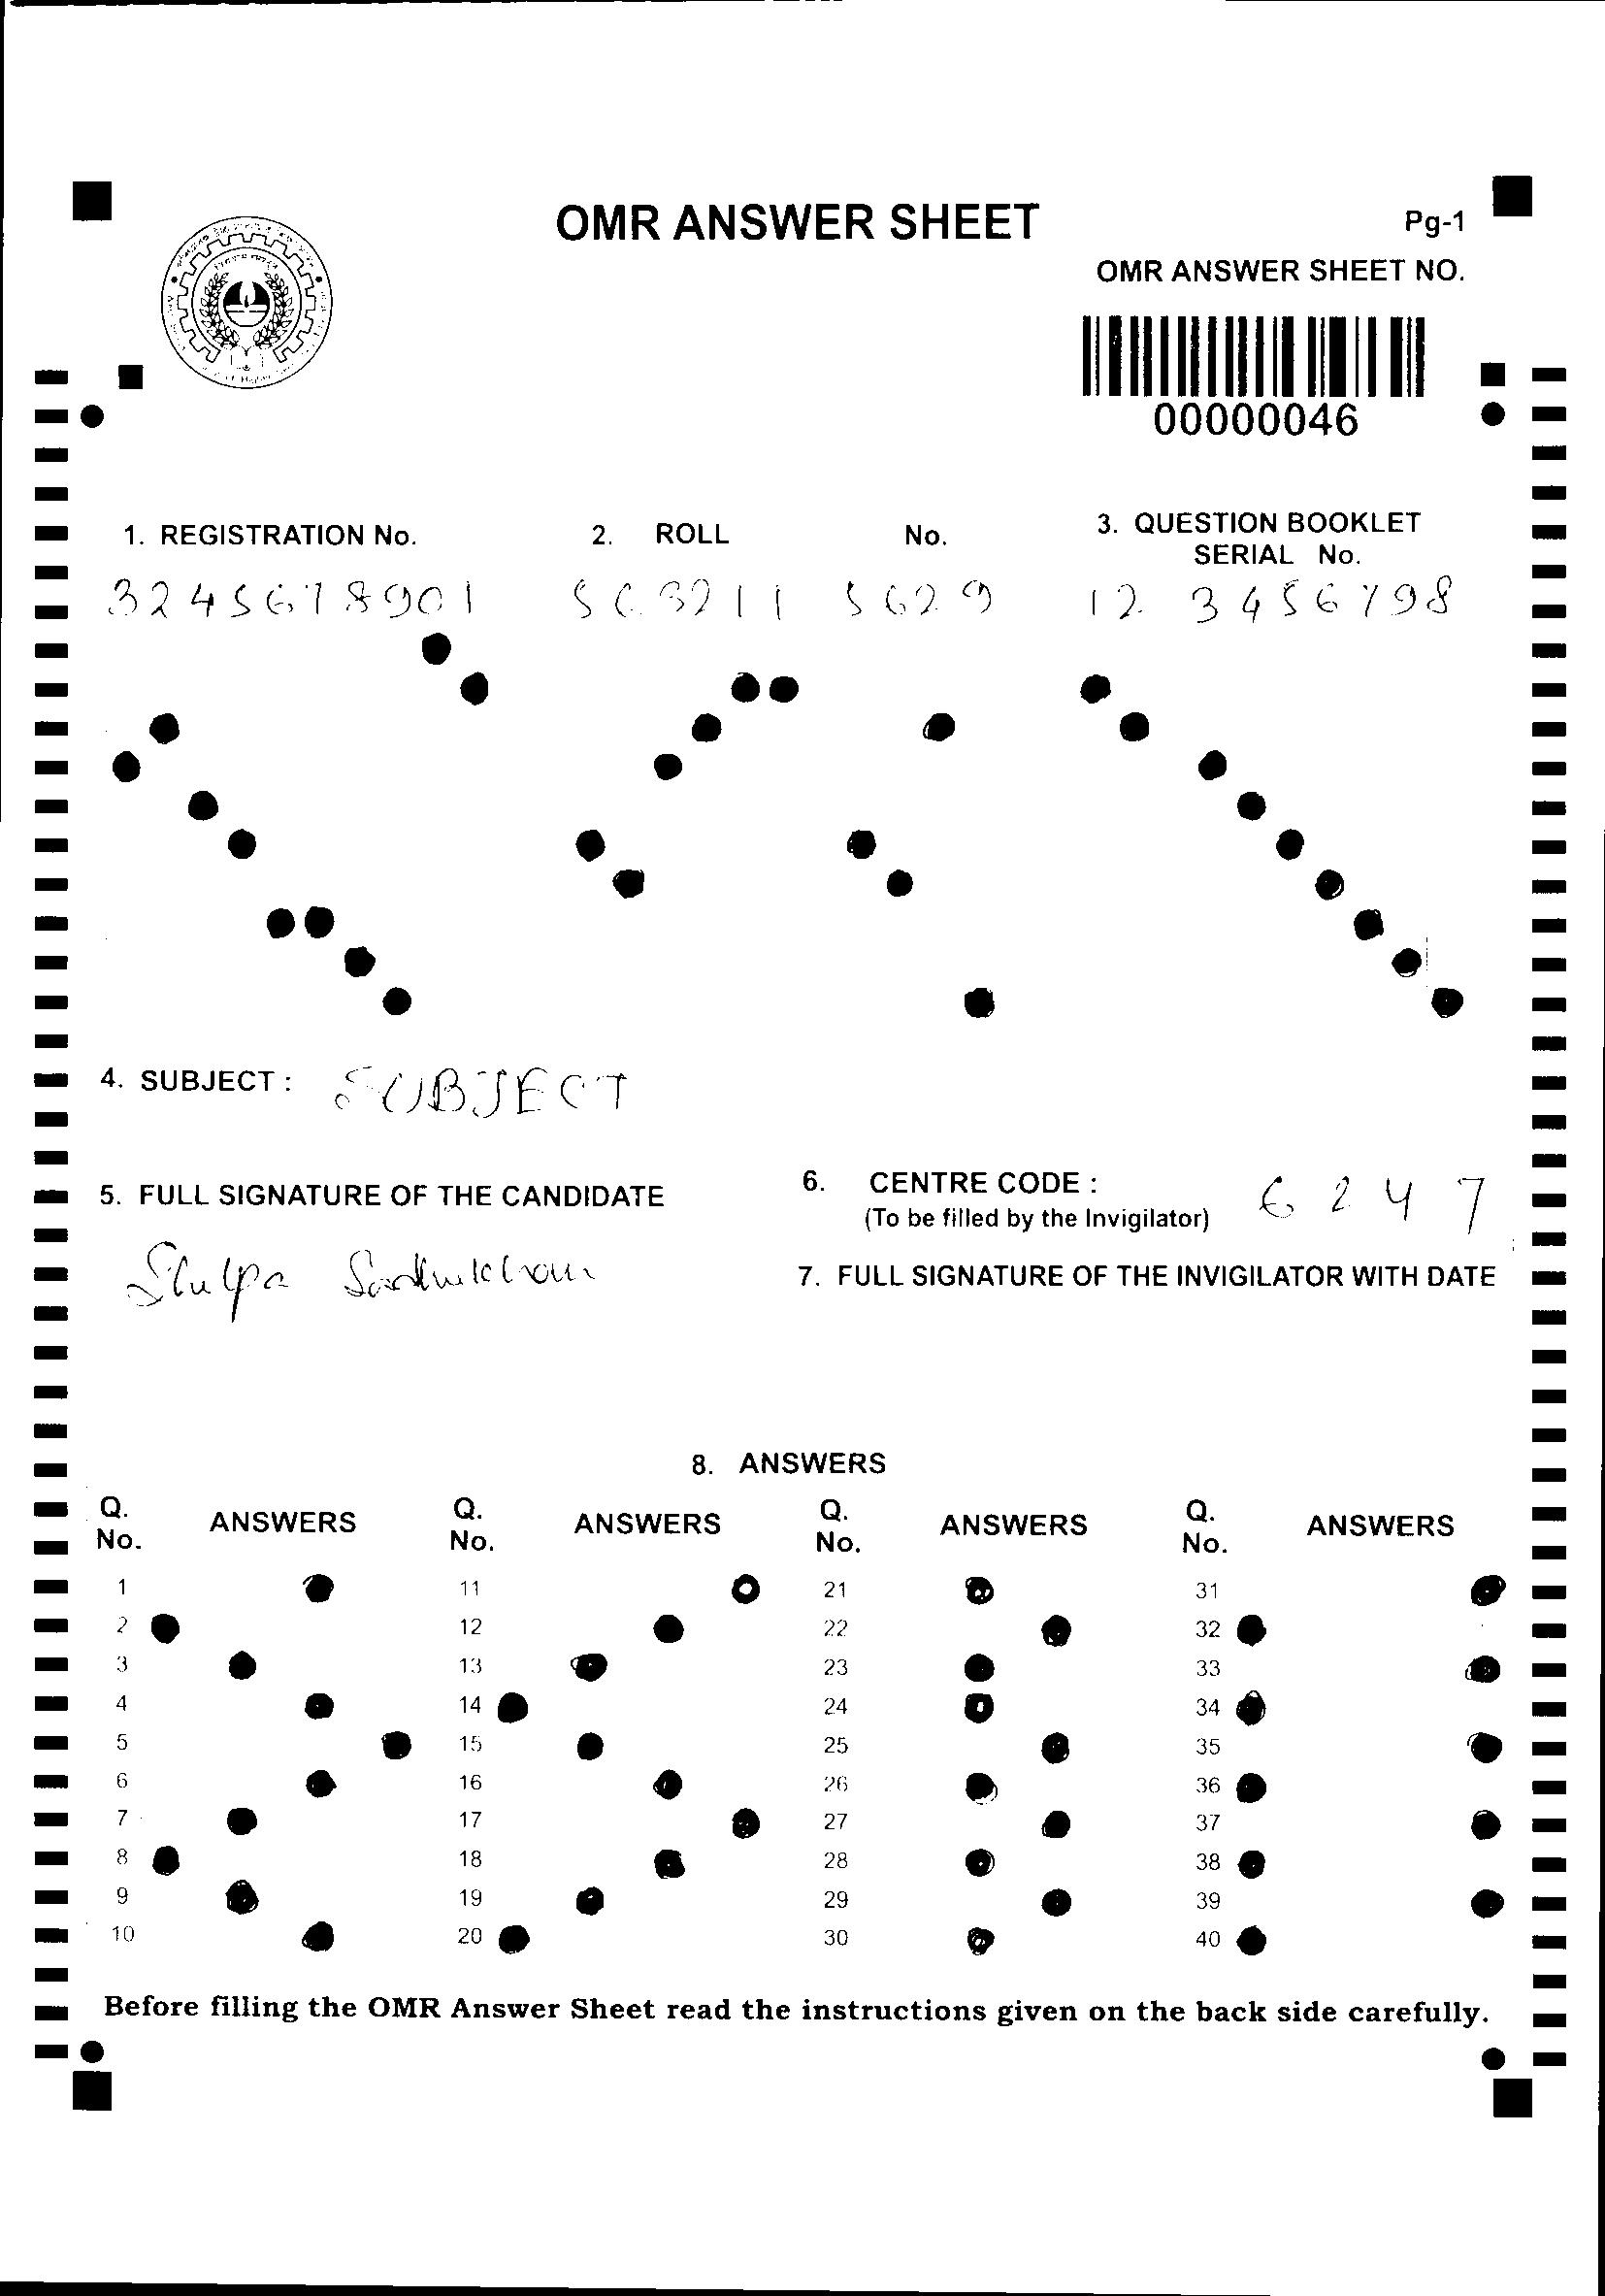 OMR ANSWER SHEET
Pg-1
OMR ANSWER SHEET NO.
00000046
1. REGISTRATION No. 2. ROLL No. 3. QUESTION BOOKLET
SERIAL No.
3245678901 563211 5629 12 3456798
4. SUBJECT : SUBJECT
5. FULL SIGNATURE OF THE CANDIDATE
6. CENTRE CODE : 6247
(To be filled by the Invigilator)
7. FULL SIGNATURE OF THE INVIGILATOR WITH DATE
8. ANSWERS
Q. No. ANSWERS Q. No. ANSWERS Q. No. ANSWERS Q. No. ANSWERS
1 11 21 31
2 12 22 32
3 13 23 33
4 14 24 34
5 15 25 35
6 16 26 36
7 17 27 37
8 18 28 38
9 19 29 39
10 20 30 40
Before filling the OMR Answer Sheet read the instructions given on the back side carefully.